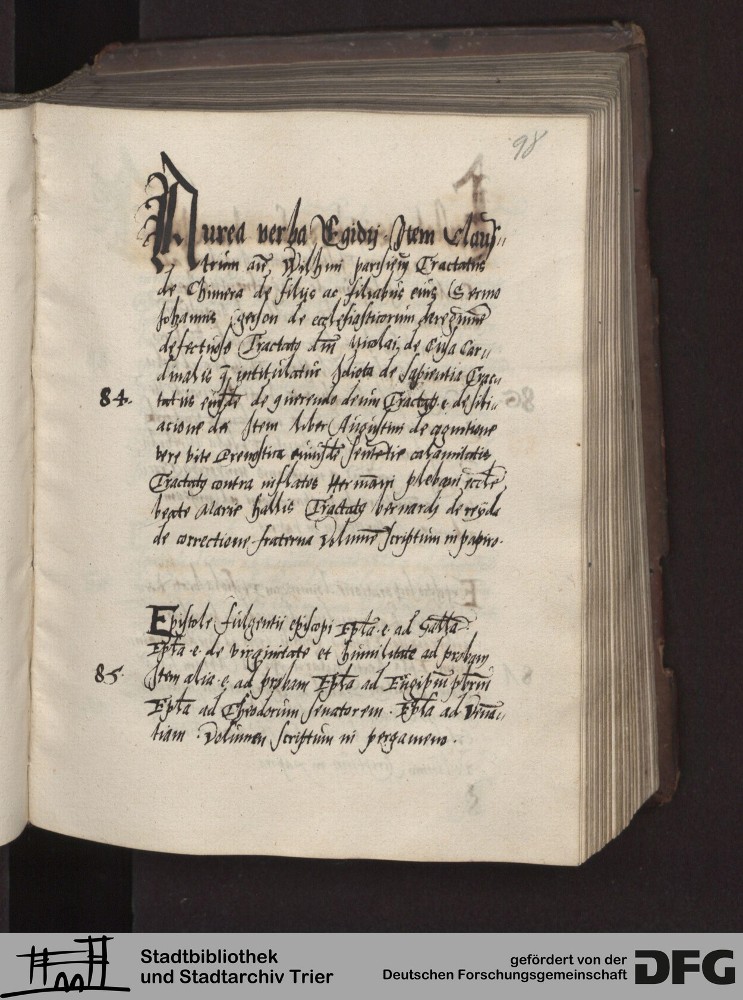 98
Aurea verba Egidij Item Claus„
trum aīe Wilhmi parisieñ Tractatus
de Chimera de filijs ac filiabus eius Sermo
Johannis gerson de ecclesiasticorum
defectuose Tractatꝰ dñi Nicolai de Cusa Car„
dinalis q̄ intitulatur Idiota de sapientia Trac„
84. tatus eiusdē de querendo deum Tractatꝰ e. de fili„
acione dei Item liber Augustini de cognitione
vere vite Prenostica eiusdē sententie calamitatis
Tractatꝰ contra inflatos Hermāni plebani eccłe
beate Marie hallis Tractatꝰ bernardi de reyda
de correctione fraterna Volumē scriptum in papiro.
Epistole fulgentii episcopi Epłа e. ad Gałła
Epłа e. de virginitate et humilitate ad probam
85. Item alia e. ad probam Epłа ad Eugipiū pbrm̄
Epłа ad Theodorum senatorem. Epłа ad Vena„
tiam. Volumen scriptum in pergameno.
Stadtbibliothek
und Stadtarchiv Trier
gefördert von der
Deutschen Forschungsgemeinschaft
DFG